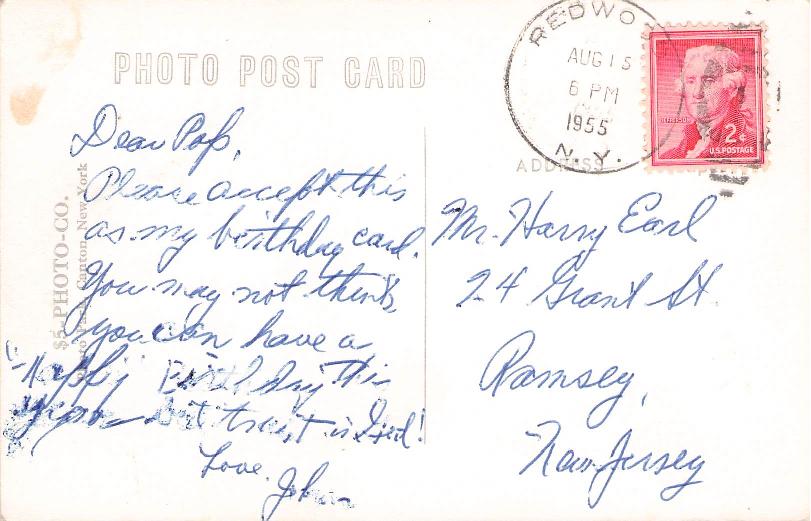 PHOTO POST CARD
REDWO
AUG 15
6 PM
1955
N.Y.
JEFFERSON
2¢
U.S. POSTAGE
ADDRESS
$5-PHOTO-CO.
Canton, New York
Dear Pop,
Please accept this
as my birthday card.
You may not think
you can have a
"Happy Birthday this
but trust in God!
Love John
Mr. Harry Earl
24 Grant St.
Ramsey,
New Jersey